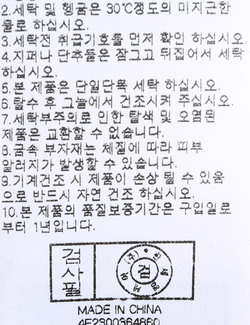 2.세탁 및 헹굼은 30℃정도의 미지근한
물로 하십시오.
3.세탁전 취급기호를 먼저 확인 하십시오.
4.지퍼나 단추들은 잠그고 뒤집어서 세탁
하십시오.
5.본 제품은 단일단목 세탁 하십시오.
6.탈수 후 그늘에서 건조시켜 주십시오.
7.세탁부주의로 인한 탈색 및 오염된
제품은 교환할 수 없습니다.
8.금속 부자재는 체질에 따라 피부
알러지가 발생할 수 있습니다.
9.기계건조 시 제품이 손상 될 수 있음
으로 반드시 자연 건조 하십시오.
10.본 제품의 품질보증기간은 구입일로
부터 1년입니다.
검사필
검
MADE IN CHINA